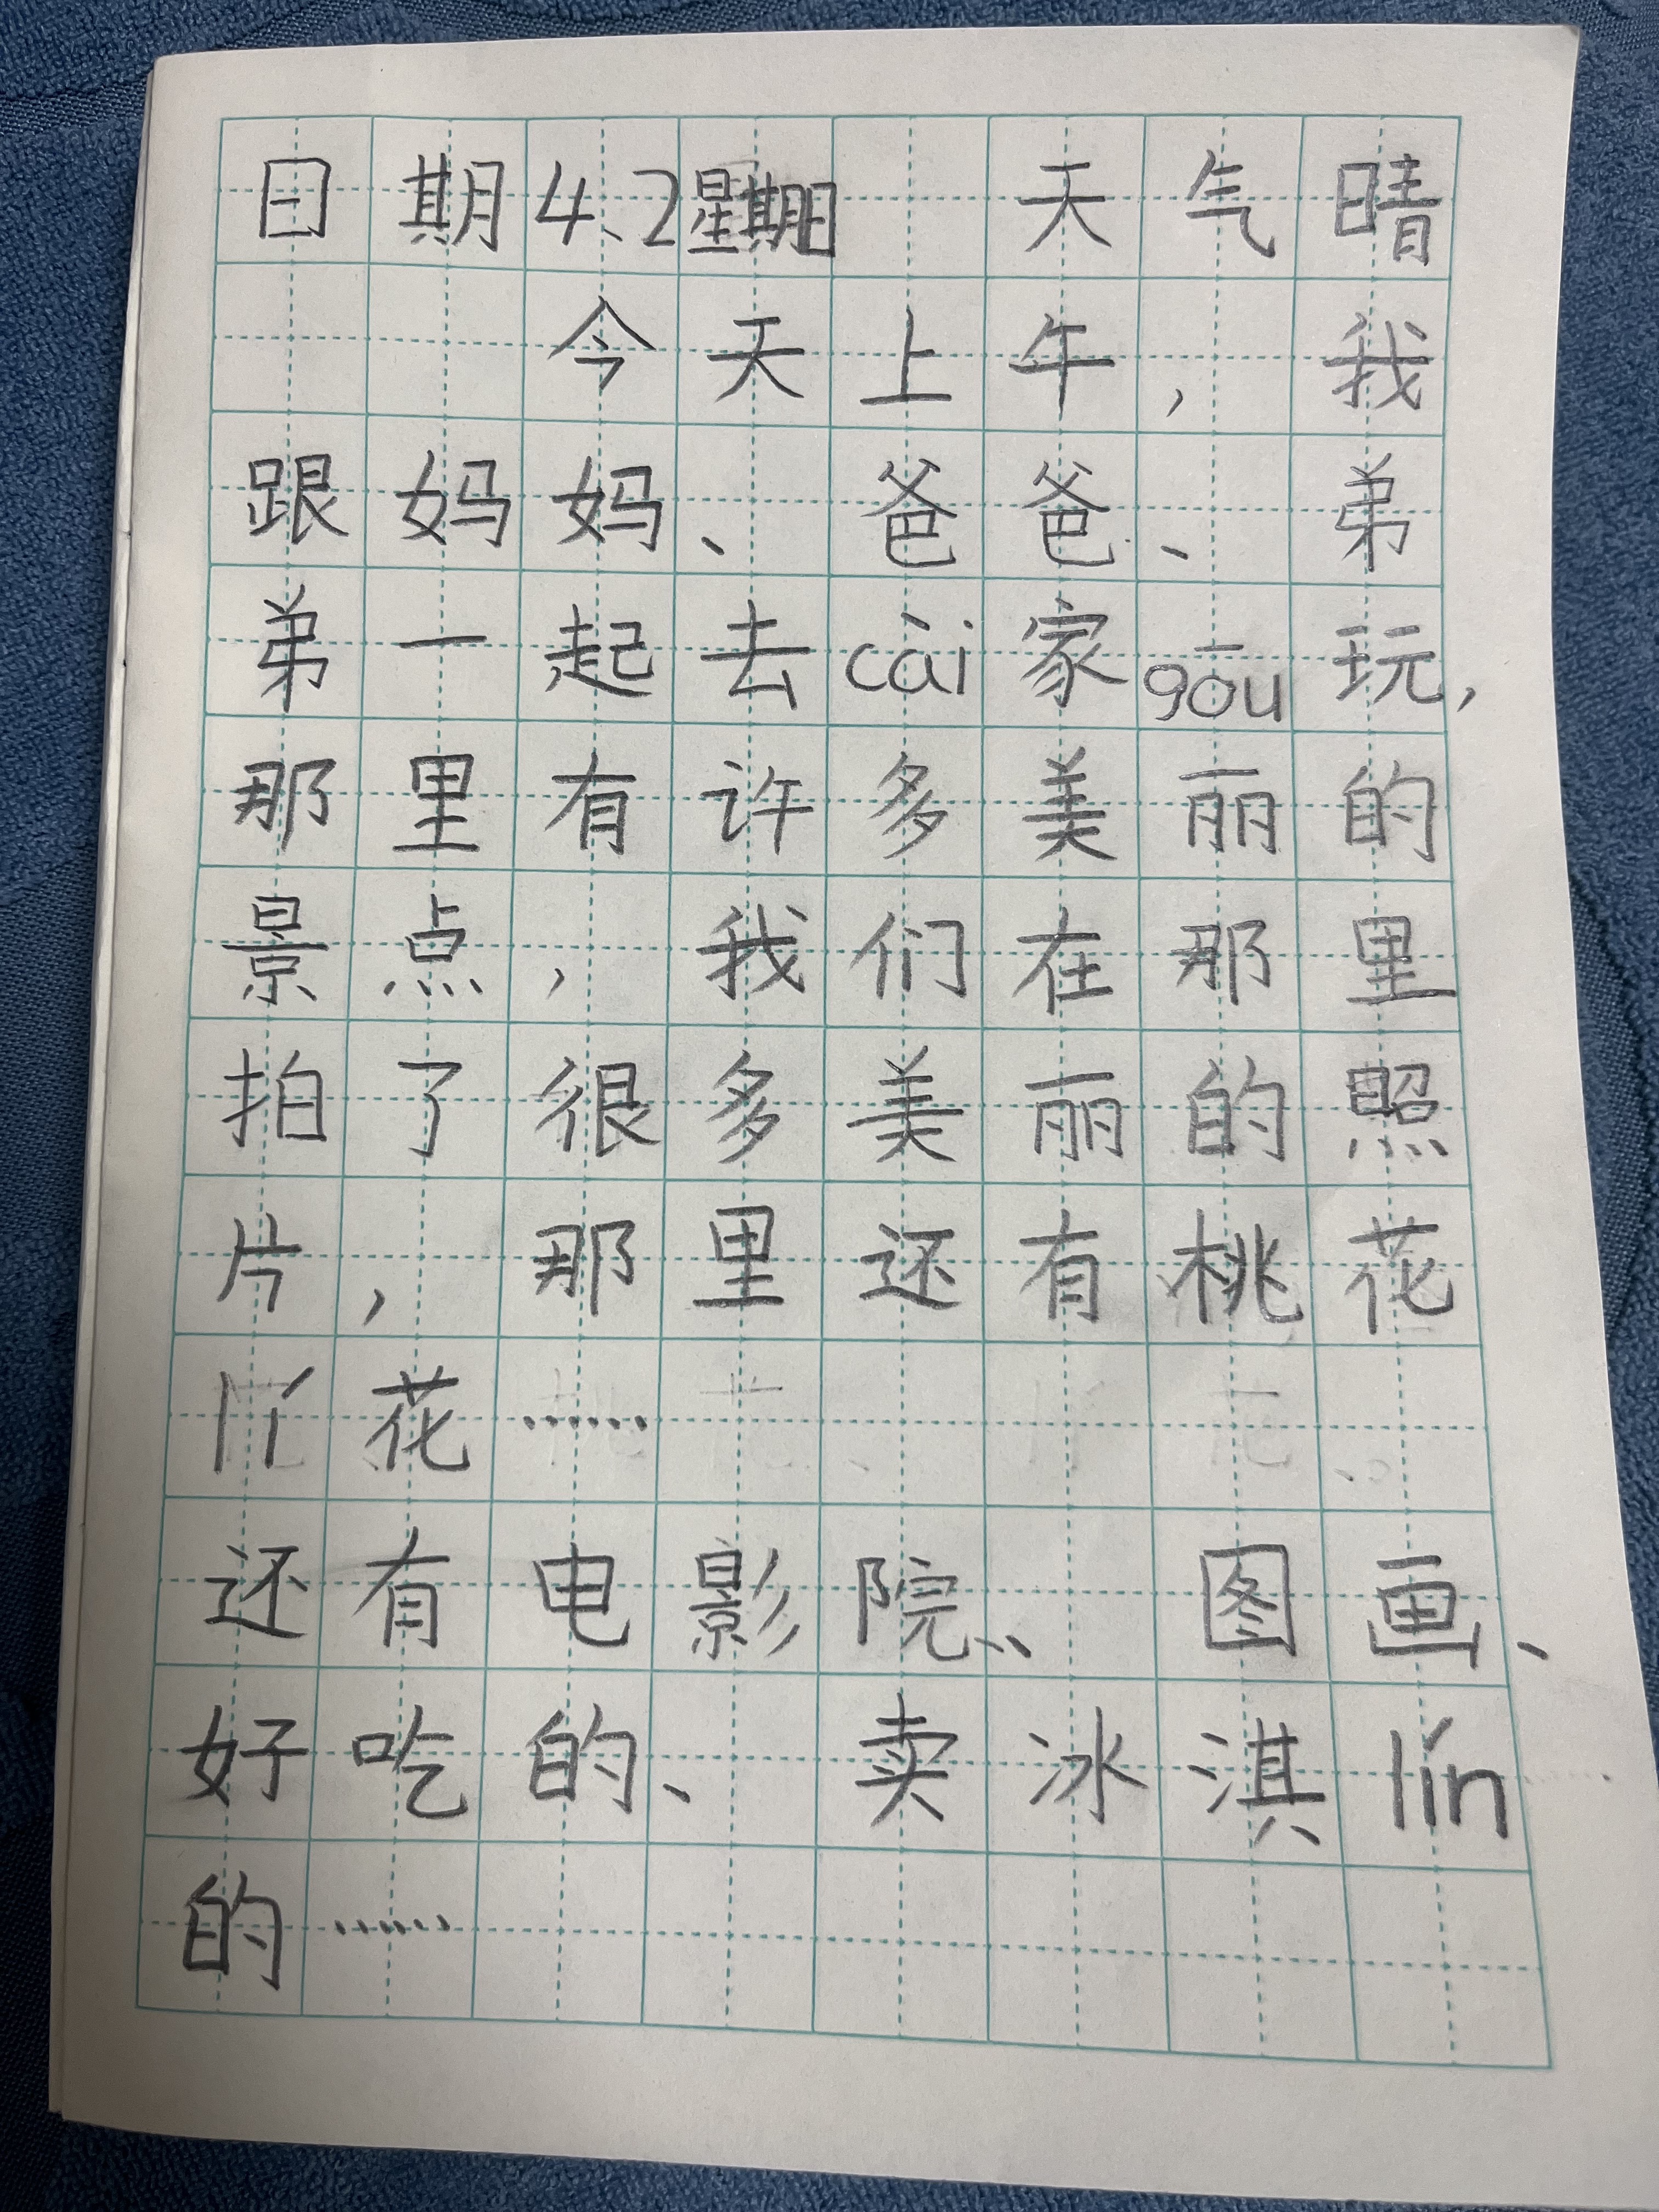 日期4、2星期日 天气晴
今天上午，我
跟妈妈、爸爸、弟
弟一起去cài家gōu玩，
那里有许多美丽的
景点，我们在那里
拍了很多美丽的照
片，那里还有桃花
lí花……
还有电影院、图画、
好吃的、卖冰淇lín
的……